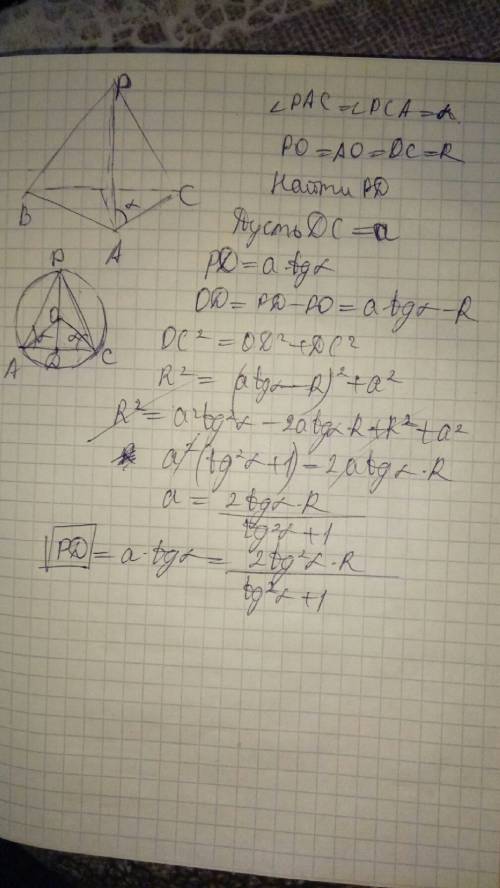 P
B
A
C
α
∠PAC = ∠PCA = α
PO = AO = DC = R
Найти PD
Пусть DC = a
PD = a·tgα
OD = PD - PO = a tgα - R
DC² = OD² + DC²
R² = (a tgα - R)² + a²
R² = a²tg²α - 2atgα·R + R² + a²
a²(tg²α + 1) - 2atgα·R
a = 2tgα·R / tg²α + 1
PD = a·tgα = 2tg²α·R / tg²α + 1
P
O
α
α
A
D
C